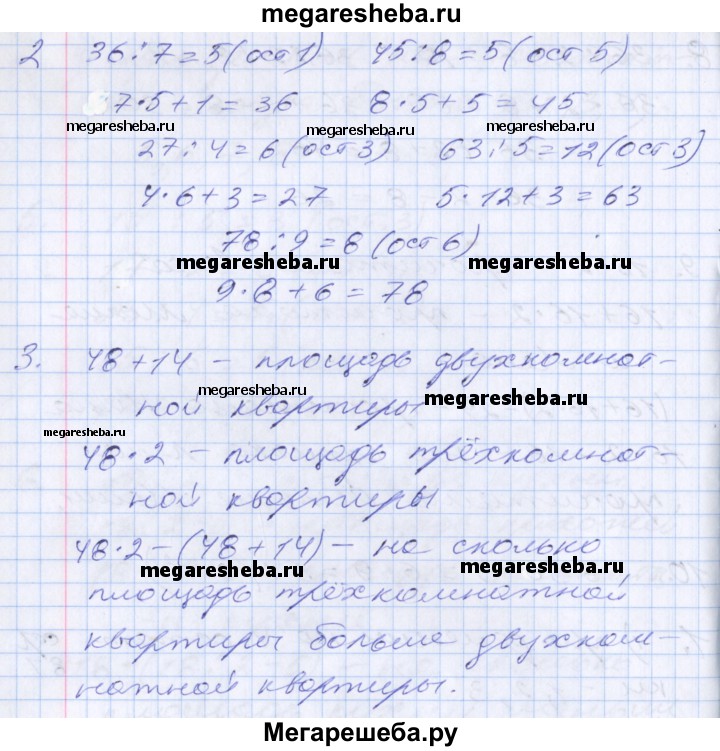 megaresheba.ru
2 36:7=5(ост1) 45:8=5(ост 5)
7·5+1=36 8·5+5=45
megaresheba.ru megaresheba.ru megaresheba.ru
27:4=6(ост3) 63:5=12(ост3)
4·6+3=27 5·12+3=63
78:9=8(ост6)
megaresheba.ru megaresheba.ru
9·8+6=78
3. 48+14 – площадь двухкомнат-
megaresheba.ru megaresheba.ru
ной квартиры
megaresheba.ru
48·2 – площадь трёхкомнат-
ной квартиры
48·2–(48+14) – на сколько
megaresheba.ru megaresheba.ru
площадь трёхкомнатной
квартиры больше двухком-
натной квартиры.
Мегарешеба.ру